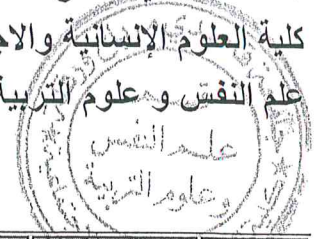 كلية العلوم الإنسانية والاج
علم النفس و علوم التربية
علم النفس
وعلوم التربية